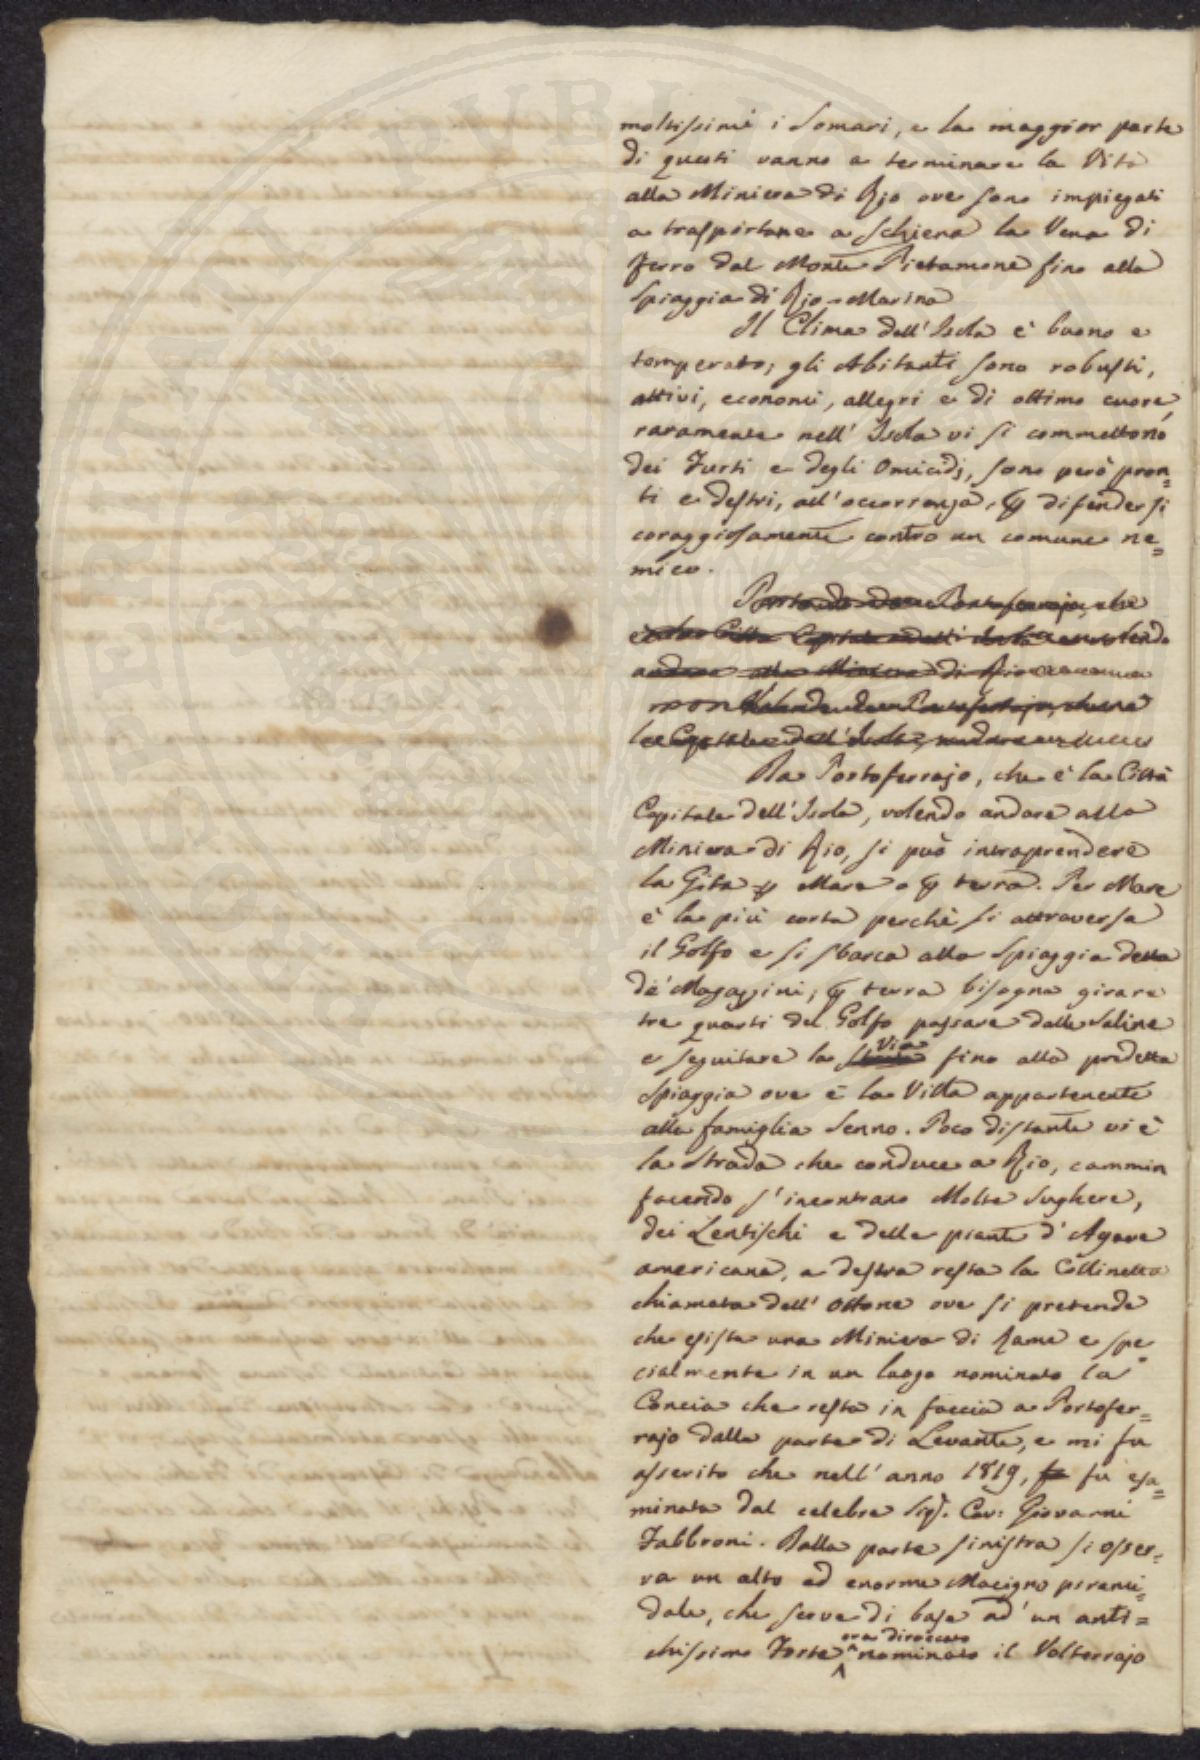 moltissimi i Somari, e la maggior parte
di questi vanno a terminare la Vita
alla Miniera di Rio ove sono impiegati
a trasportare a schiena la Vena di
ferro dal Monte Pietamone fino alla
Spiaggia di Rio-Marina
Il Clima dell'Isola è buono e
temperato; gli Abitanti sono robusti,
attivi, economi, allegri e di ottimo cuore,
raramente nell'Isola vi si commettono
dei Furti e degli Omicidj, sono però pron=
ti e destri, all'occorrenza, p difendersi
coraggiosamente contro un comune ne=
mico.
Portoferrajo, che
di Rio
non Volendo da Portoferrajo, che è
la Capitale dell'Isola, andare
Da Portoferrajo, che è la Città
Capitale dell'Isola, volendo andare alla
Miniera di Rio, si può intraprendere
la Gita p Mare o p terra. Per Mare
è la più corta perchè si attraversa
il Golfo e si sbarca alla Spiaggia detta
de' Magazzini; p terra bisogna girare
tre quarti del Golfo passare dalle Saline
e seguitare la Strada Via fino alla predetta
Spiaggia ove è la Villa appartenente
alla famiglia Senno. Poco distante vi è
la Strada che conduce a Rio, cammin
facendo s'incontrano Molte Sughere,
dei Lentischi e delle piante d'Agave
americana, a destra resta la Collinetta
chiamata dell'Ottone ove si pretende
che esista una Miniera di Rame e spe
cialmente in un luogo nominato la
Concia che resta in faccia a Portofer=
rajo dalla parte di Levante, e mi fu
asserito che nell'anno 1819, fu fu esa=
minata dal celebre Sigr. Cav: Giovanni
Fabbroni. Dalla parte sinistra si osser=
va un alto ed enorme Macigno pirami=
dale, che serve di base ad un anti=
chissimo Forte ora diroccato nominato il Volterrajo